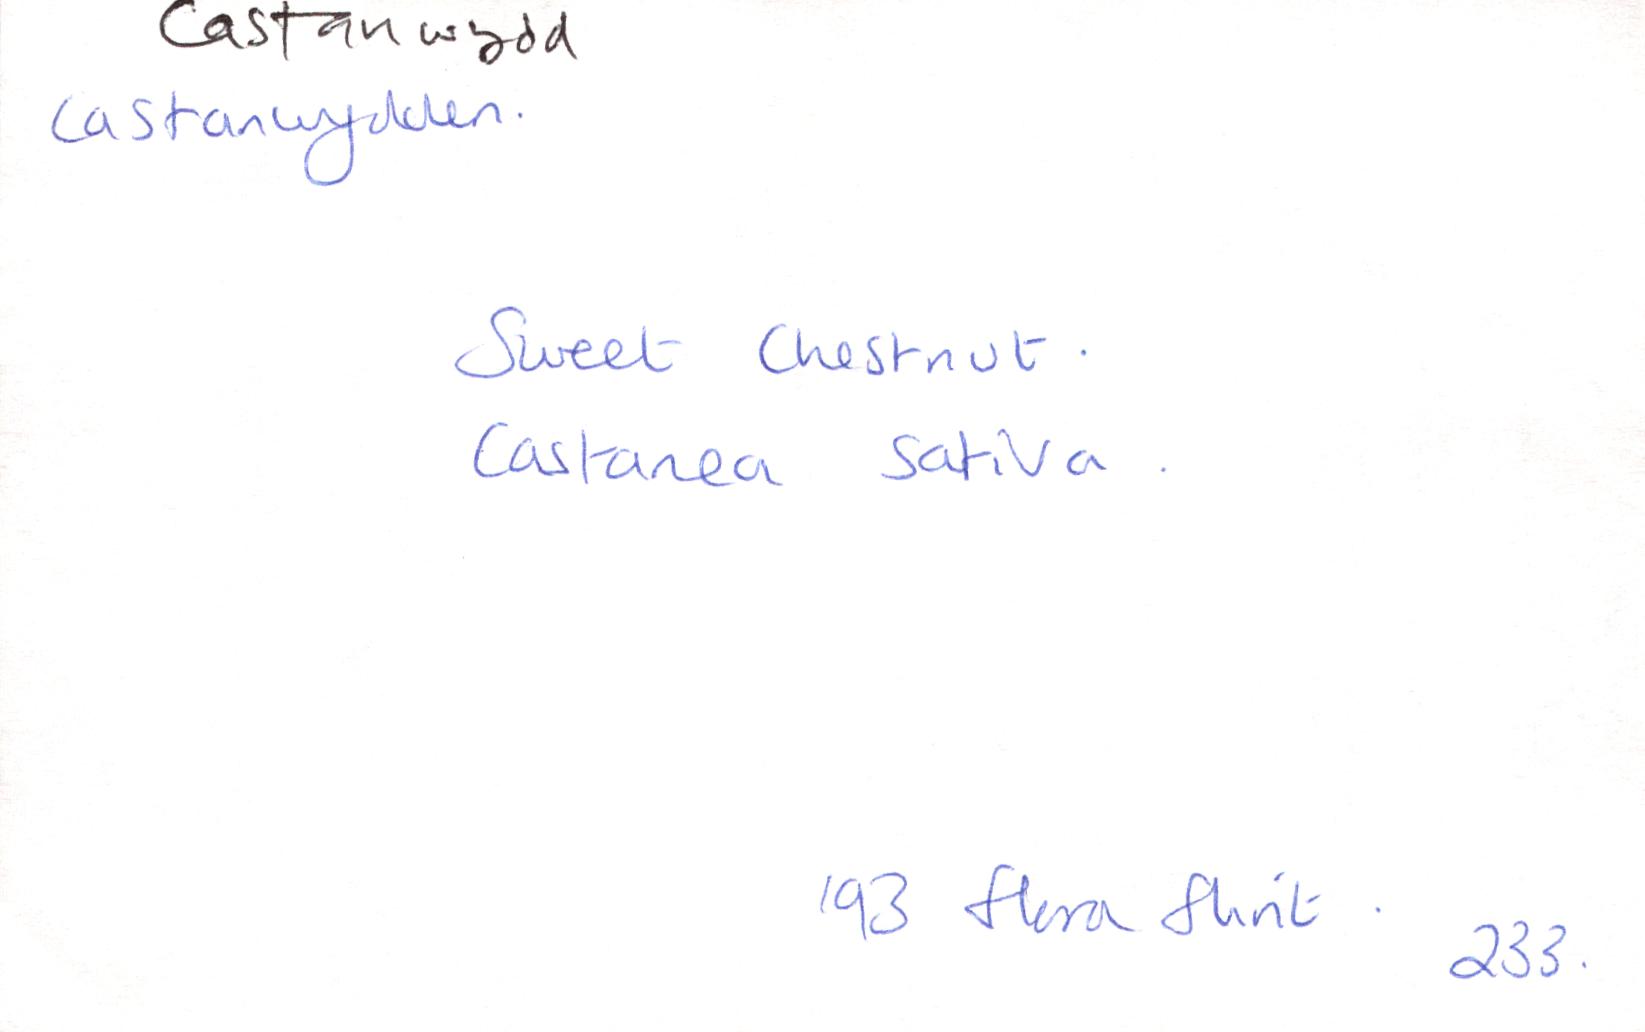 Castanwydd
Castanwydden.
Sweet Chestnut.
Castanea sativa.
193 flora flint.
233.